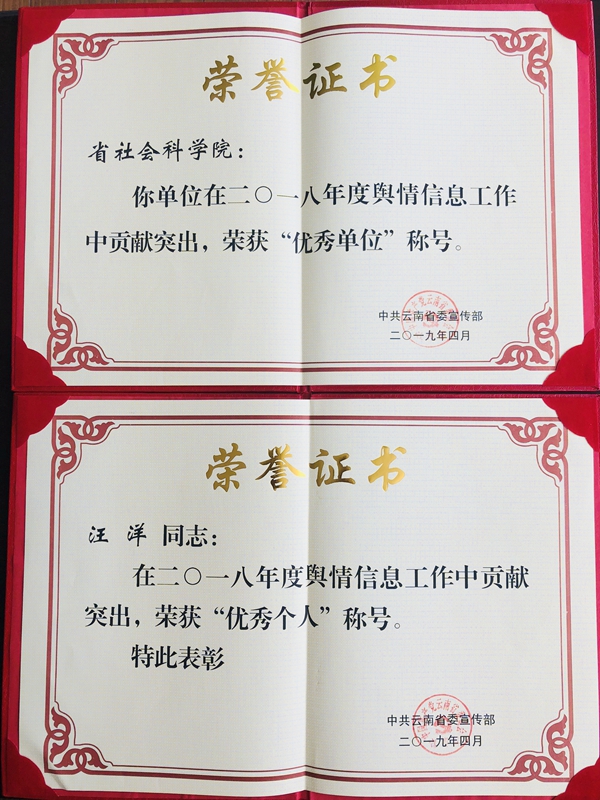 荣誉证书
省社会科学院：
你单位在二〇一八年度舆情信息工作
中贡献突出，荣获“优秀单位”称号。
中共云南省委宣传部
二〇一九年四月
荣誉证书
汪 洋 同志：
在二〇一八年度舆情信息工作中贡献
突出，荣获“优秀个人”称号。
特此表彰
中共云南省委宣传部
二〇一九年四月